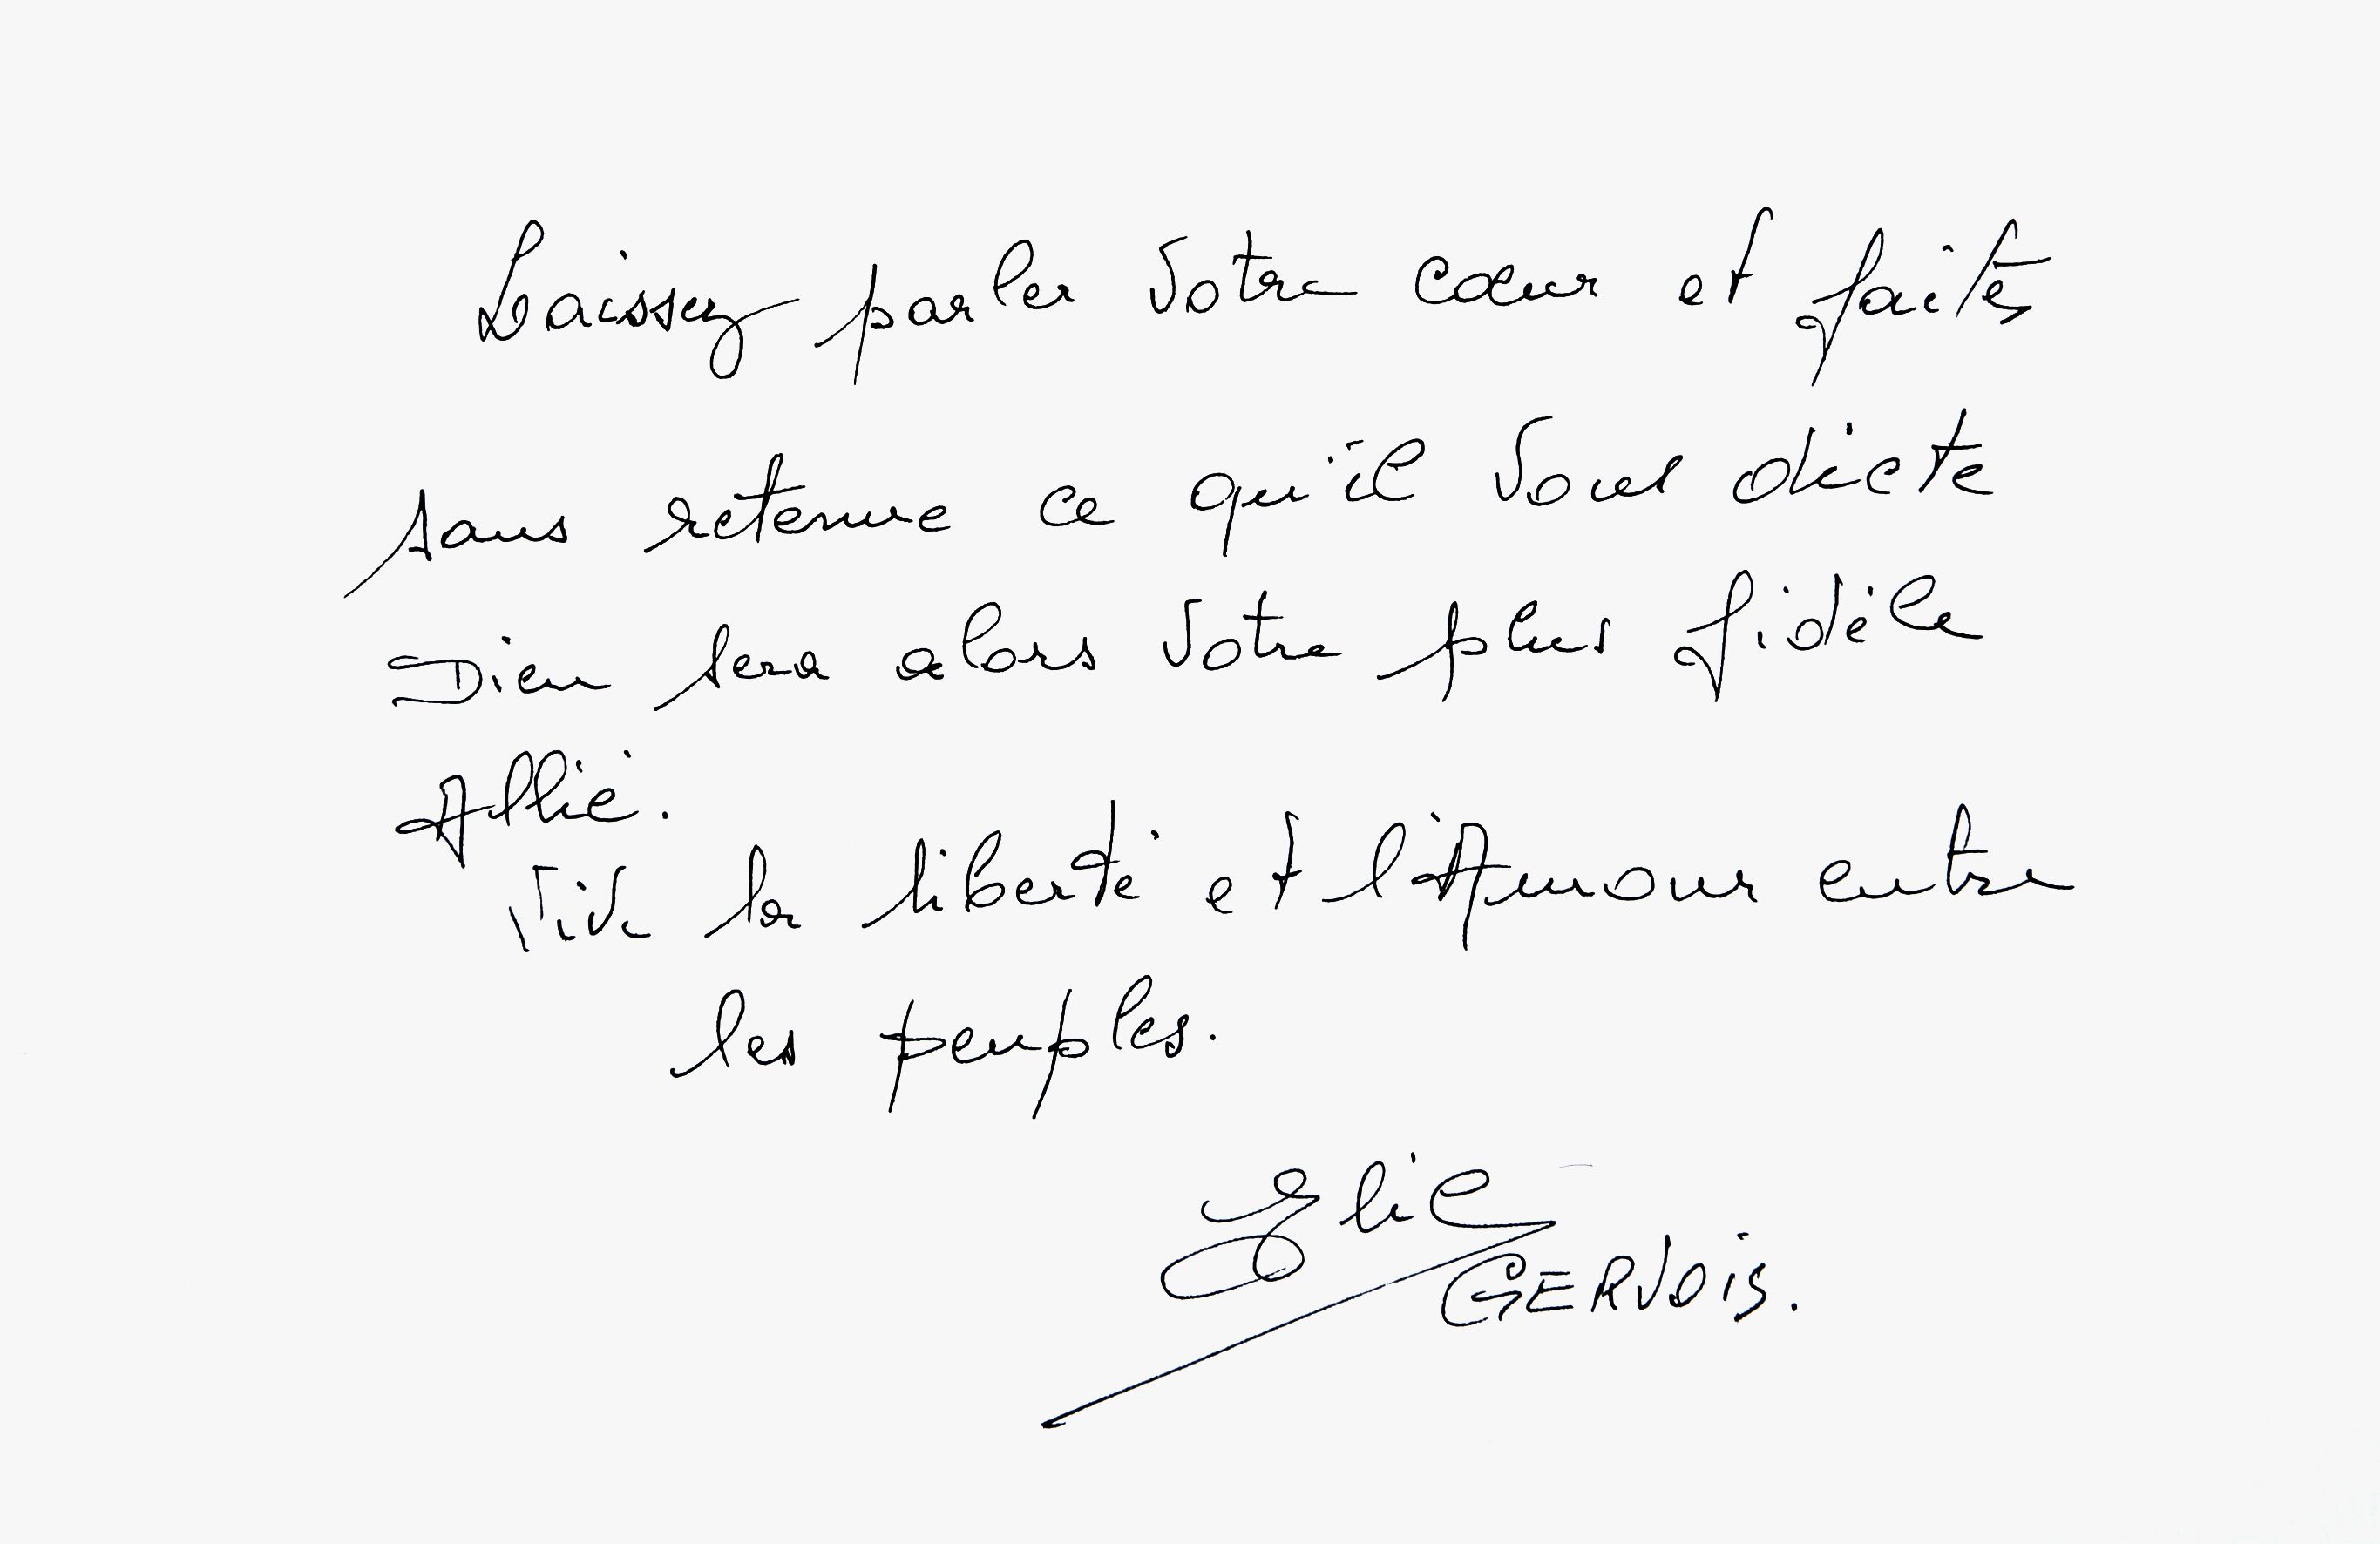 Laissez parler votre cœur et faites
sans retenue ce qu'il vous dicte
Dieu sera alors votre plus fidèle
Allié.
Vive la liberté et l'Amour entre
les peuples.
Elie
GERVOIS.